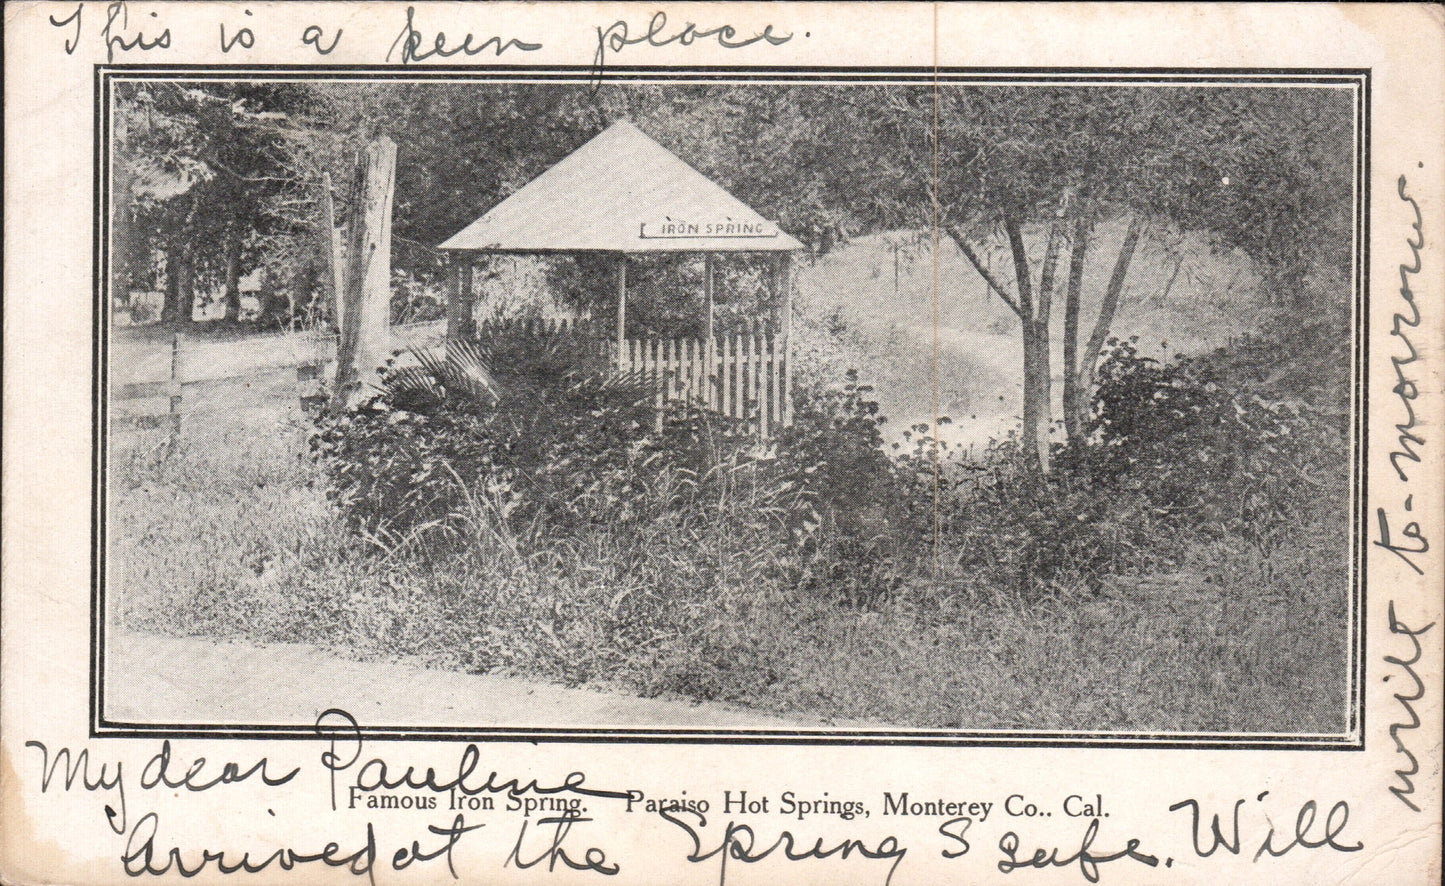 This is a keen place.
IRON SPRING
My dear Pauline
Famous Iron Spring. Paraiso Hot Springs, Monterey Co.. Cal.
Arrived at the Spring S safe. Will
write to-morrow.